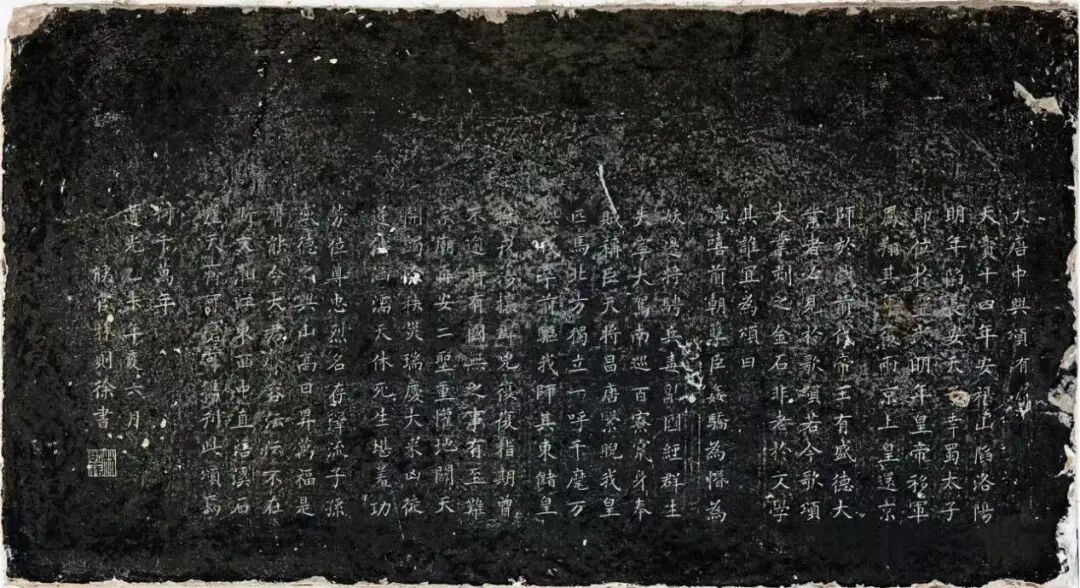 大唐中興頌有序
天寶十四年安祿山陷洛陽
明年陷長安天子幸蜀太子
即位於靈武明年皇帝移軍
鳳翔其年復兩京上皇還京
師於戲前代帝王有盛德大
業者必見於歌頌若今歌頌
大業刻之金石非老於文學
其誰宜為頌曰
噫嘻前朝孽臣姦驕為惛為
妖邊將騁兵毒亂國經群生
失寧大駕南巡百寮竄身奉
賊稱臣天將昌唐繄睨我皇
匹馬北方獨立一呼千麾萬
旟戎卒前驅我師其東儲皇
撫戎蕩攘群兇復復指期曾
不逾時有國無之事有至難
宗廟再安二聖重懽地闢天
開蠲除祅災瑞慶大來凶徒
逆儔涵濡天休死生堪羞功
勞位尊忠烈名存澤流子孫
盛德之興山高日昇萬福是
膺能令大君聲容沄沄不在
斯文湘江東西中直浯溪石
崖天齊可磨可鐫刊此頌焉
何千萬年
道光乙未年夏六月
候官林則徐書